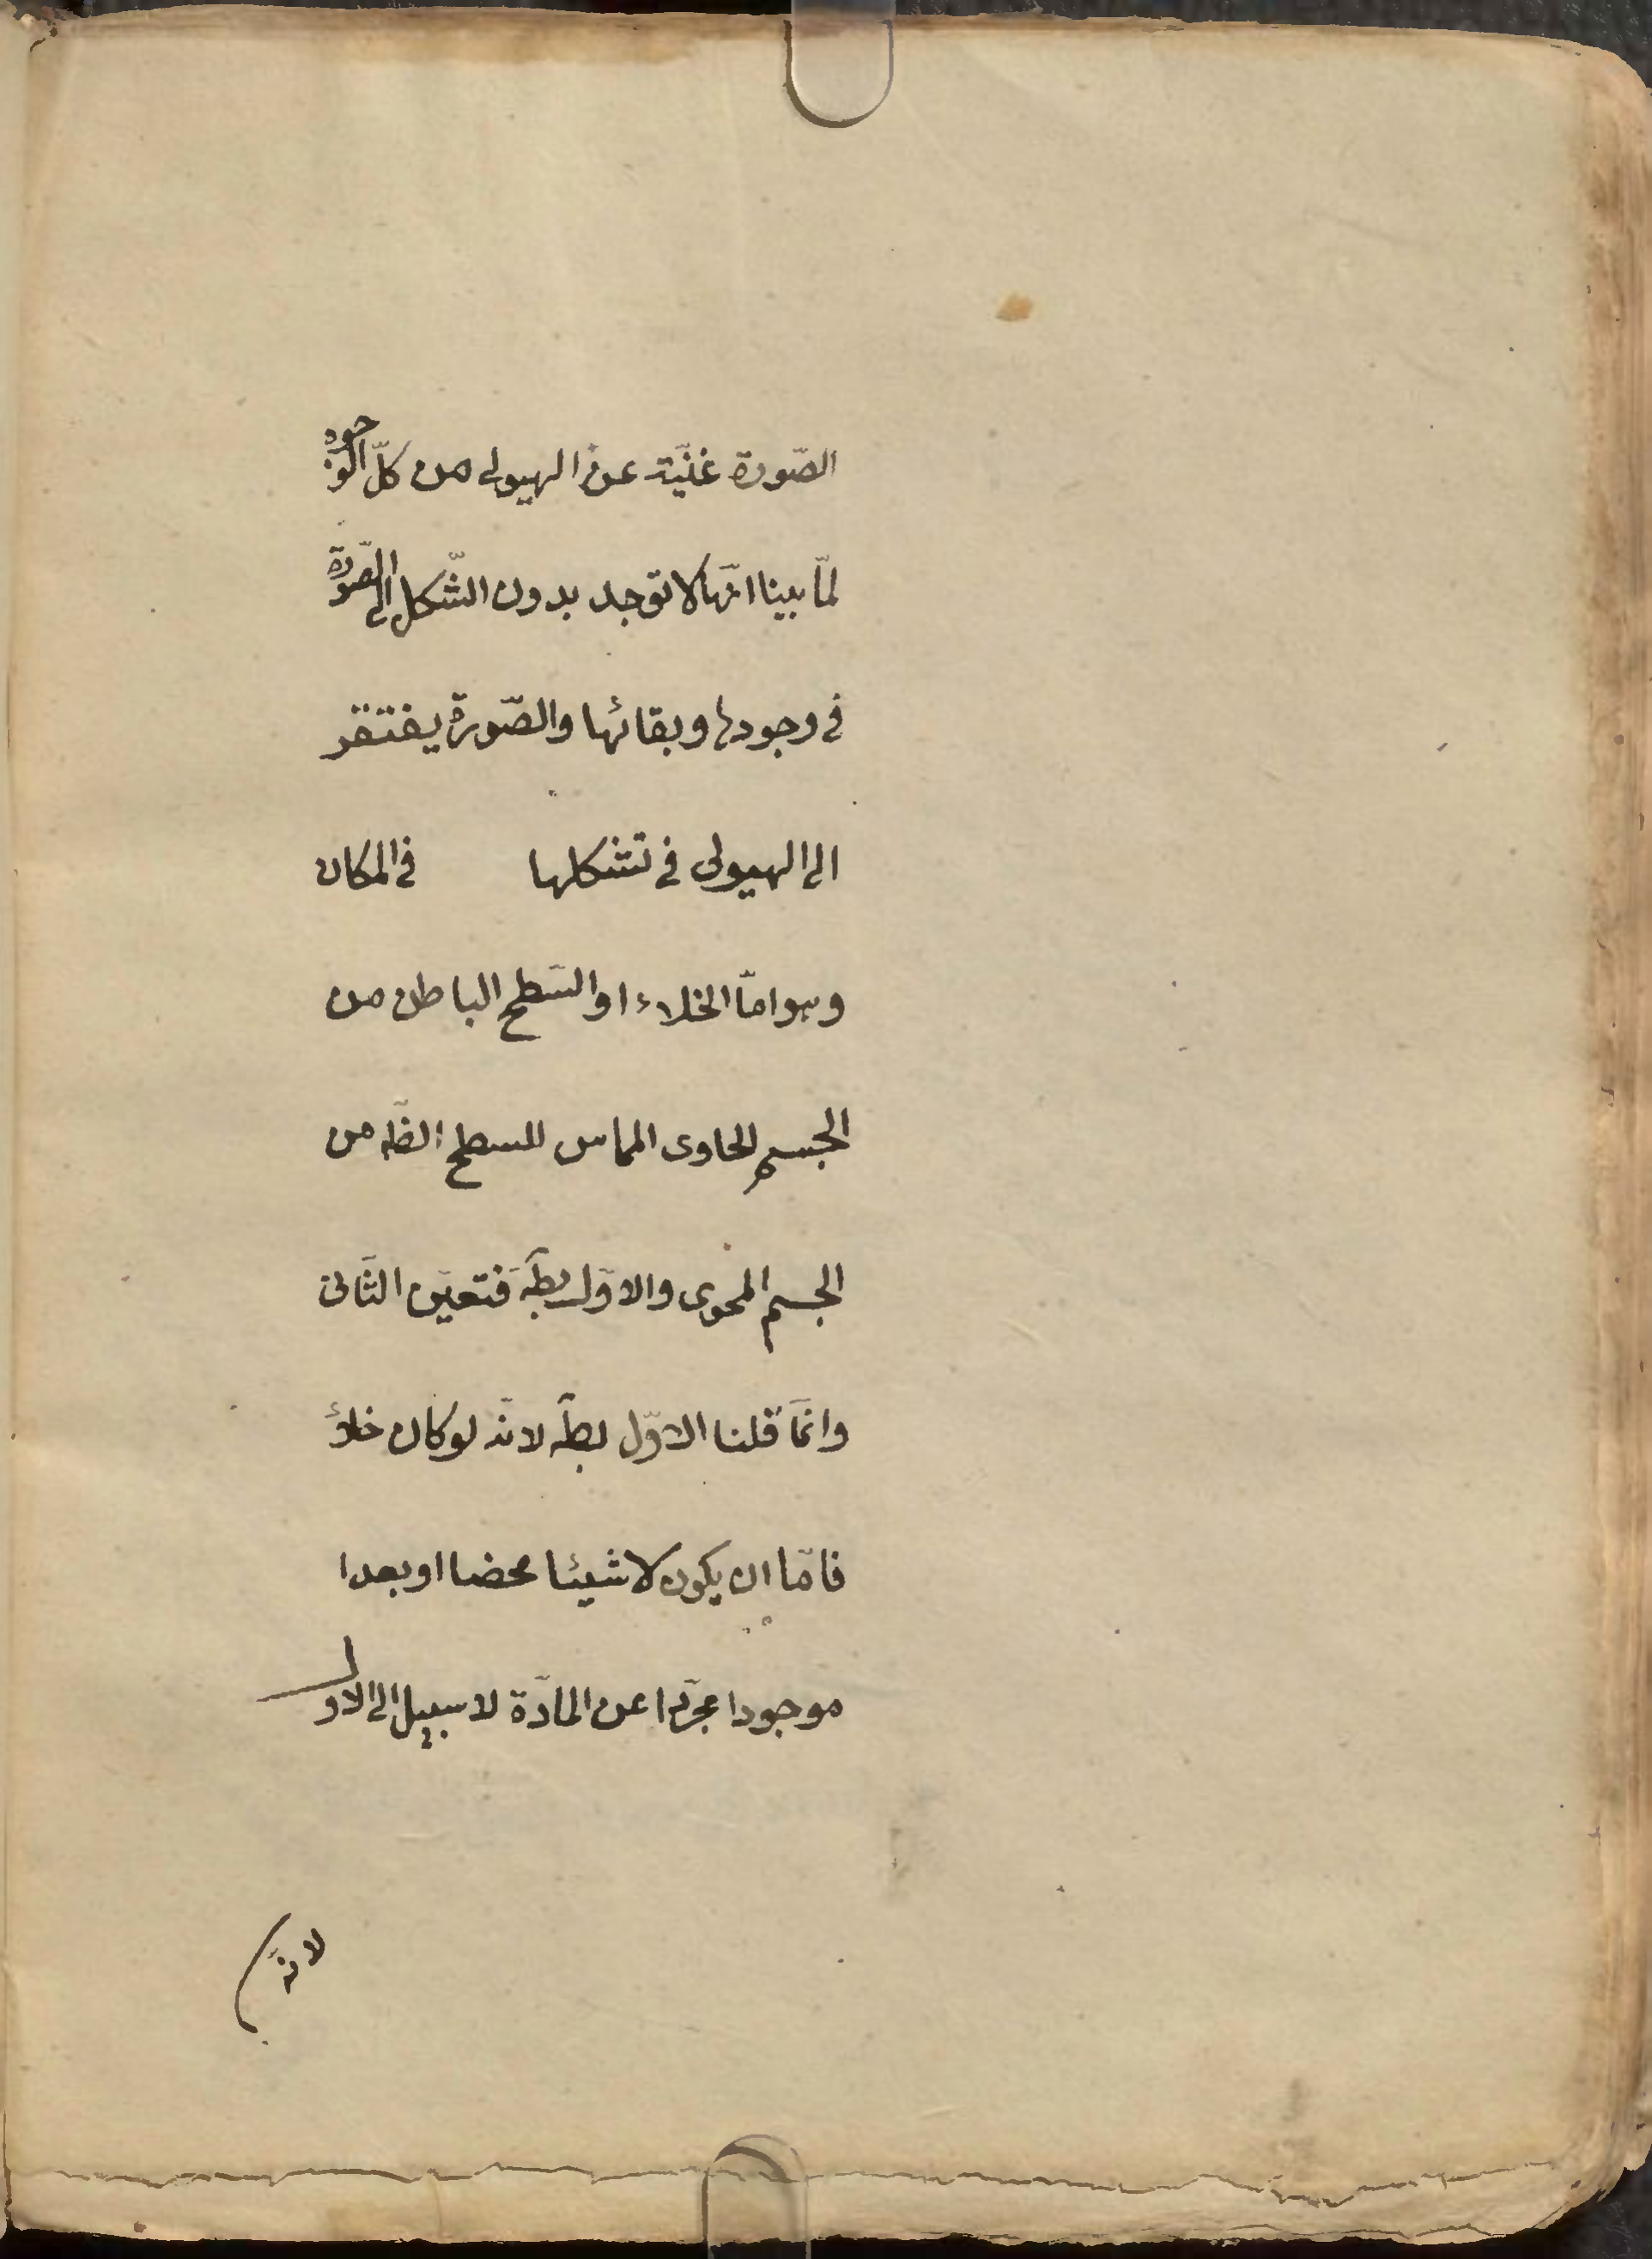 الصّورة غنيّة عن الهيولى من كلّ الوجوه
لمّا بينا انّها لا توجد بدون الشّكل الى الصّورة
فى وجودها وبقائها والصّورة يفتقر
الى الهيولى فى تشكلها فى المكان
وهو امّا الخلاء او السّطح الباطن من
الجسم الحاوى المماس للسطح الظه من
الجسم المحوى والاوّل بطّه فتعيّن الثّانى
وانّما قلنا الاوّل بطّه لانّه لو كان خلاء
فامّا ان يكون لا شيئا محضا او بعدا
موجودا مجرّدا عن المادّة لا سبيل الى الاول
لانّه